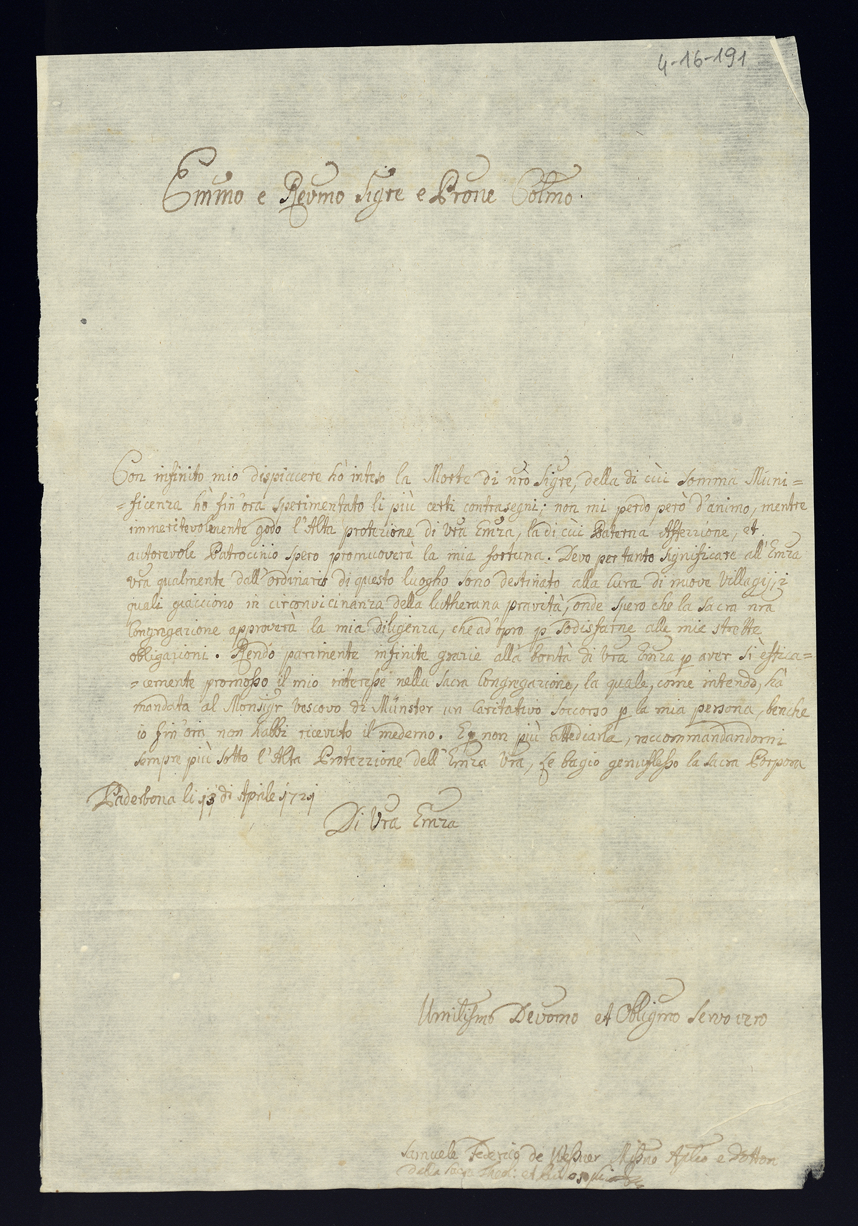 4-16-191
Emmo e Revmo Sigre e Prone Colmo.
Con infinito mio dispiacere hò inteso la Morte di nrõ Sigre, della di cùi somma Mùni=
=ficenza hò fin'ora sperimentato li più certi contrasegni; non mi perdo però d'animo, mentre
immeritevolmente godo l'Alta protezione di Vra Emza, la di cùi Paterna Affezzione, et
autorevole Patrocinio spero promuoverà la mia fortuna. Devo per tanto significare all'Emza
vra qualmente dall'ordinario di questo luogho sono destinato alla Cura di nuove Villagij, i
quali giacciono in circonvicinanza della lutherana pravità, onde spero che la Sacra nrã
Congregazione approverà la mia diligenza, che ad'opro p Sodisfarne alle mie strette
obligazioni. Rendo parimente infinite grazie alla bontà di Vra Emza p aver sì effica=
=cemente promosso il mio interesse nella Sacra Congregazione, la quale, come intendo, hà
mandata al Monsigr Vescovo di Mùnster un Caritativo Soccorso p la mia persona, benche
io fin'ora non habbi ricevuto il medemo. E p non più attediarla, raccommandandomi
sempre più sotto l'Alta Protezzione dell'Emza Vra, le bagio genuflesso la Sacra Porpora
Paderbona li 13 di Aprile 1721
Di Vra Emza
Umilissmo Devomo et Obligmo Servo vero
Samuele Federico de Missno Aplico e Dottor
della Sacra et